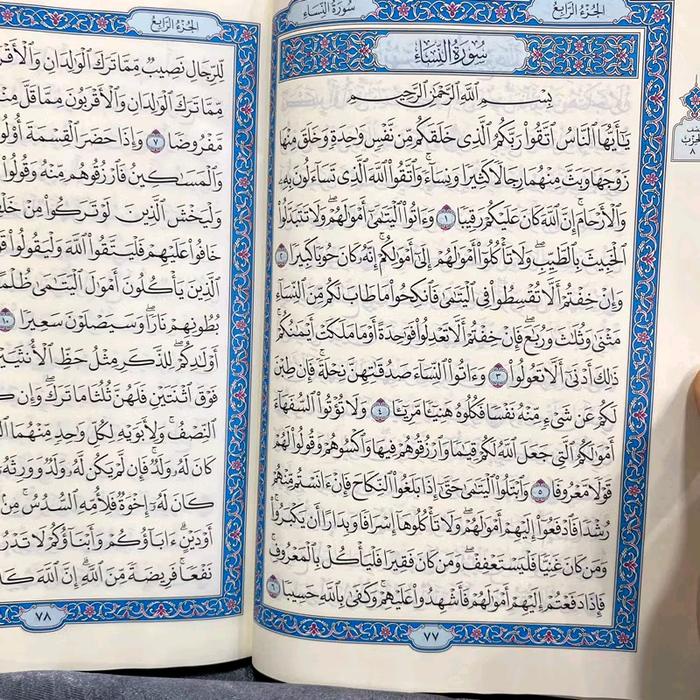 الجزء الرابع
سورة النساء
سُورَةُ النِّسَاءِ
بِسْمِ ٱللَّهِ ٱلرَّحْمَٰنِ ٱلرَّحِيمِ
يَٰٓأَيُّهَا ٱلنَّاسُ ٱتَّقُوا۟ رَبَّكُمُ ٱلَّذِى خَلَقَكُم مِّن نَّفْسٍ وَٰحِدَةٍ وَخَلَقَ مِنْهَا
زَوْجَهَا وَبَثَّ مِنْهُمَا رِجَالًا كَثِيرًا وَنِسَآءً ۚ وَٱتَّقُوا۟ ٱللَّهَ ٱلَّذِى تَسَآءَلُونَ بِهِۦ
وَٱلْأَرْحَامَ ۚ إِنَّ ٱللَّهَ كَانَ عَلَيْكُمْ رَقِيبًا ١ وَءَاتُوا۟ ٱلْيَتَٰمَىٰٓ أَمْوَٰلَهُمْ ۖ وَلَا تَتَبَدَّلُوا۟
ٱلْخَبِيثَ بِٱلطَّيِّبِ ۖ وَلَا تَأْكُلُوٓا۟ أَمْوَٰلَهُمْ إِلَىٰٓ أَمْوَٰلِكُمْ ۚ إِنَّهُۥ كَانَ حُوبًا كَبِيرًا ٢
وَإِنْ خِفْتُمْ أَلَّا تُقْسِطُوا۟ فِى ٱلْيَتَٰمَىٰ فَٱنكِحُوا۟ مَا طَابَ لَكُم مِّنَ ٱلنِّسَآءِ
مَثْنَىٰ وَثُلَٰثَ وَرُبَٰعَ ۖ فَإِنْ خِفْتُمْ أَلَّا تَعْدِلُوا۟ فَوَٰحِدَةً أَوْ مَا مَلَكَتْ أَيْمَٰنُكُمْ ۚ
ذَٰلِكَ أَدْنَىٰٓ أَلَّا تَعُولُوا۟ ٣ وَءَاتُوا۟ ٱلنِّسَآءَ صَدُقَٰتِهِنَّ نِحْلَةً ۚ فَإِن طِبْنَ
لَكُمْ عَن شَىْءٍ مِّنْهُ نَفْسًا فَكُلُوهُ هَنِيٓـًٔا مَّرِيٓـًٔا ٤ وَلَا تُؤْتُوا۟ ٱلسُّفَهَآءَ
أَمْوَٰلَكُمُ ٱلَّتِى جَعَلَ ٱللَّهُ لَكُمْ قِيَٰمًا وَٱرْزُقُوهُمْ فِيهَا وَٱكْسُوهُمْ وَقُولُوا۟ لَهُمْ
قَوْلًا مَّعْرُوفًا ٥ وَٱبْتَلُوا۟ ٱلْيَتَٰمَىٰ حَتَّىٰٓ إِذَا بَلَغُوا۟ ٱلنِّكَاحَ فَإِنْ ءَانَسْتُم مِّنْهُمْ
رُشْدًا فَٱدْفَعُوٓا۟ إِلَيْهِمْ أَمْوَٰلَهُمْ ۖ وَلَا تَأْكُلُوهَآ إِسْرَافًا وَبِدَارًا أَن يَكْبَرُوا۟ ۚ
وَمَن كَانَ غَنِيًّا فَلْيَسْتَعْفِفْ ۖ وَمَن كَانَ فَقِيرًا فَلْيَأْكُلْ بِٱلْمَعْرُوفِ ۚ
فَإِذَا دَفَعْتُمْ إِلَيْهِمْ أَمْوَٰلَهُمْ فَأَشْهِدُوا۟ عَلَيْهِمْ ۚ وَكَفَىٰ بِٱللَّهِ حَسِيبًا ٦
٧٧
الجزء الرابع
لِّلرِّجَالِ نَصِيبٌ مِّمَّا تَرَكَ ٱلْوَٰلِدَانِ
مِمَّا تَرَكَ ٱلْوَٰلِدَانِ وَٱلْأَقْرَبُونَ مِمَّا قَلَّ
مَّفْرُوضًا ٧ وَإِذَا حَضَرَ ٱلْقِسْمَةَ
وَٱلْمَسَٰكِينُ فَٱرْزُقُوهُم مِّنْهُ وَقُولُوا۟
وَلْيَخْشَ ٱلَّذِينَ لَوْ تَرَكُوا۟ مِنْ
خَافُوا۟ عَلَيْهِمْ فَلْيَتَّقُوا۟ ٱللَّهَ وَلْيَقُولُوا۟
ٱلَّذِينَ يَأْكُلُونَ أَمْوَٰلَ ٱلْيَتَٰمَىٰ
بُطُونِهِمْ نَارًا ۖ وَسَيَصْلَوْنَ سَعِيرًا ١٠
أَوْلَٰدِكُمْ ۖ لِلذَّكَرِ مِثْلُ حَظِّ
فَوْقَ ٱثْنَتَيْنِ فَلَهُنَّ ثُلُثَا مَا تَرَكَ ۖ وَإِن
ٱلنِّصْفُ ۚ وَلِأَبَوَيْهِ لِكُلِّ وَٰحِدٍ مِّنْهُمَا
كَانَ لَهُۥ وَلَدٌ ۚ فَإِن لَّمْ يَكُن لَّهُۥ وَلَدٌ وَوَرِثَهُۥٓ
كَانَ لَهُۥٓ إِخْوَةٌ فَلِأُمِّهِ ٱلسُّدُسُ ۚ مِنۢ
أَوْ دَيْنٍ ۗ ءَابَآؤُكُمْ وَأَبْنَآؤُكُمْ لَا
نَفْعًا ۚ فَرِيضَةً مِّنَ ٱللَّهِ ۗ إِنَّ ٱللَّهَ
٧٨